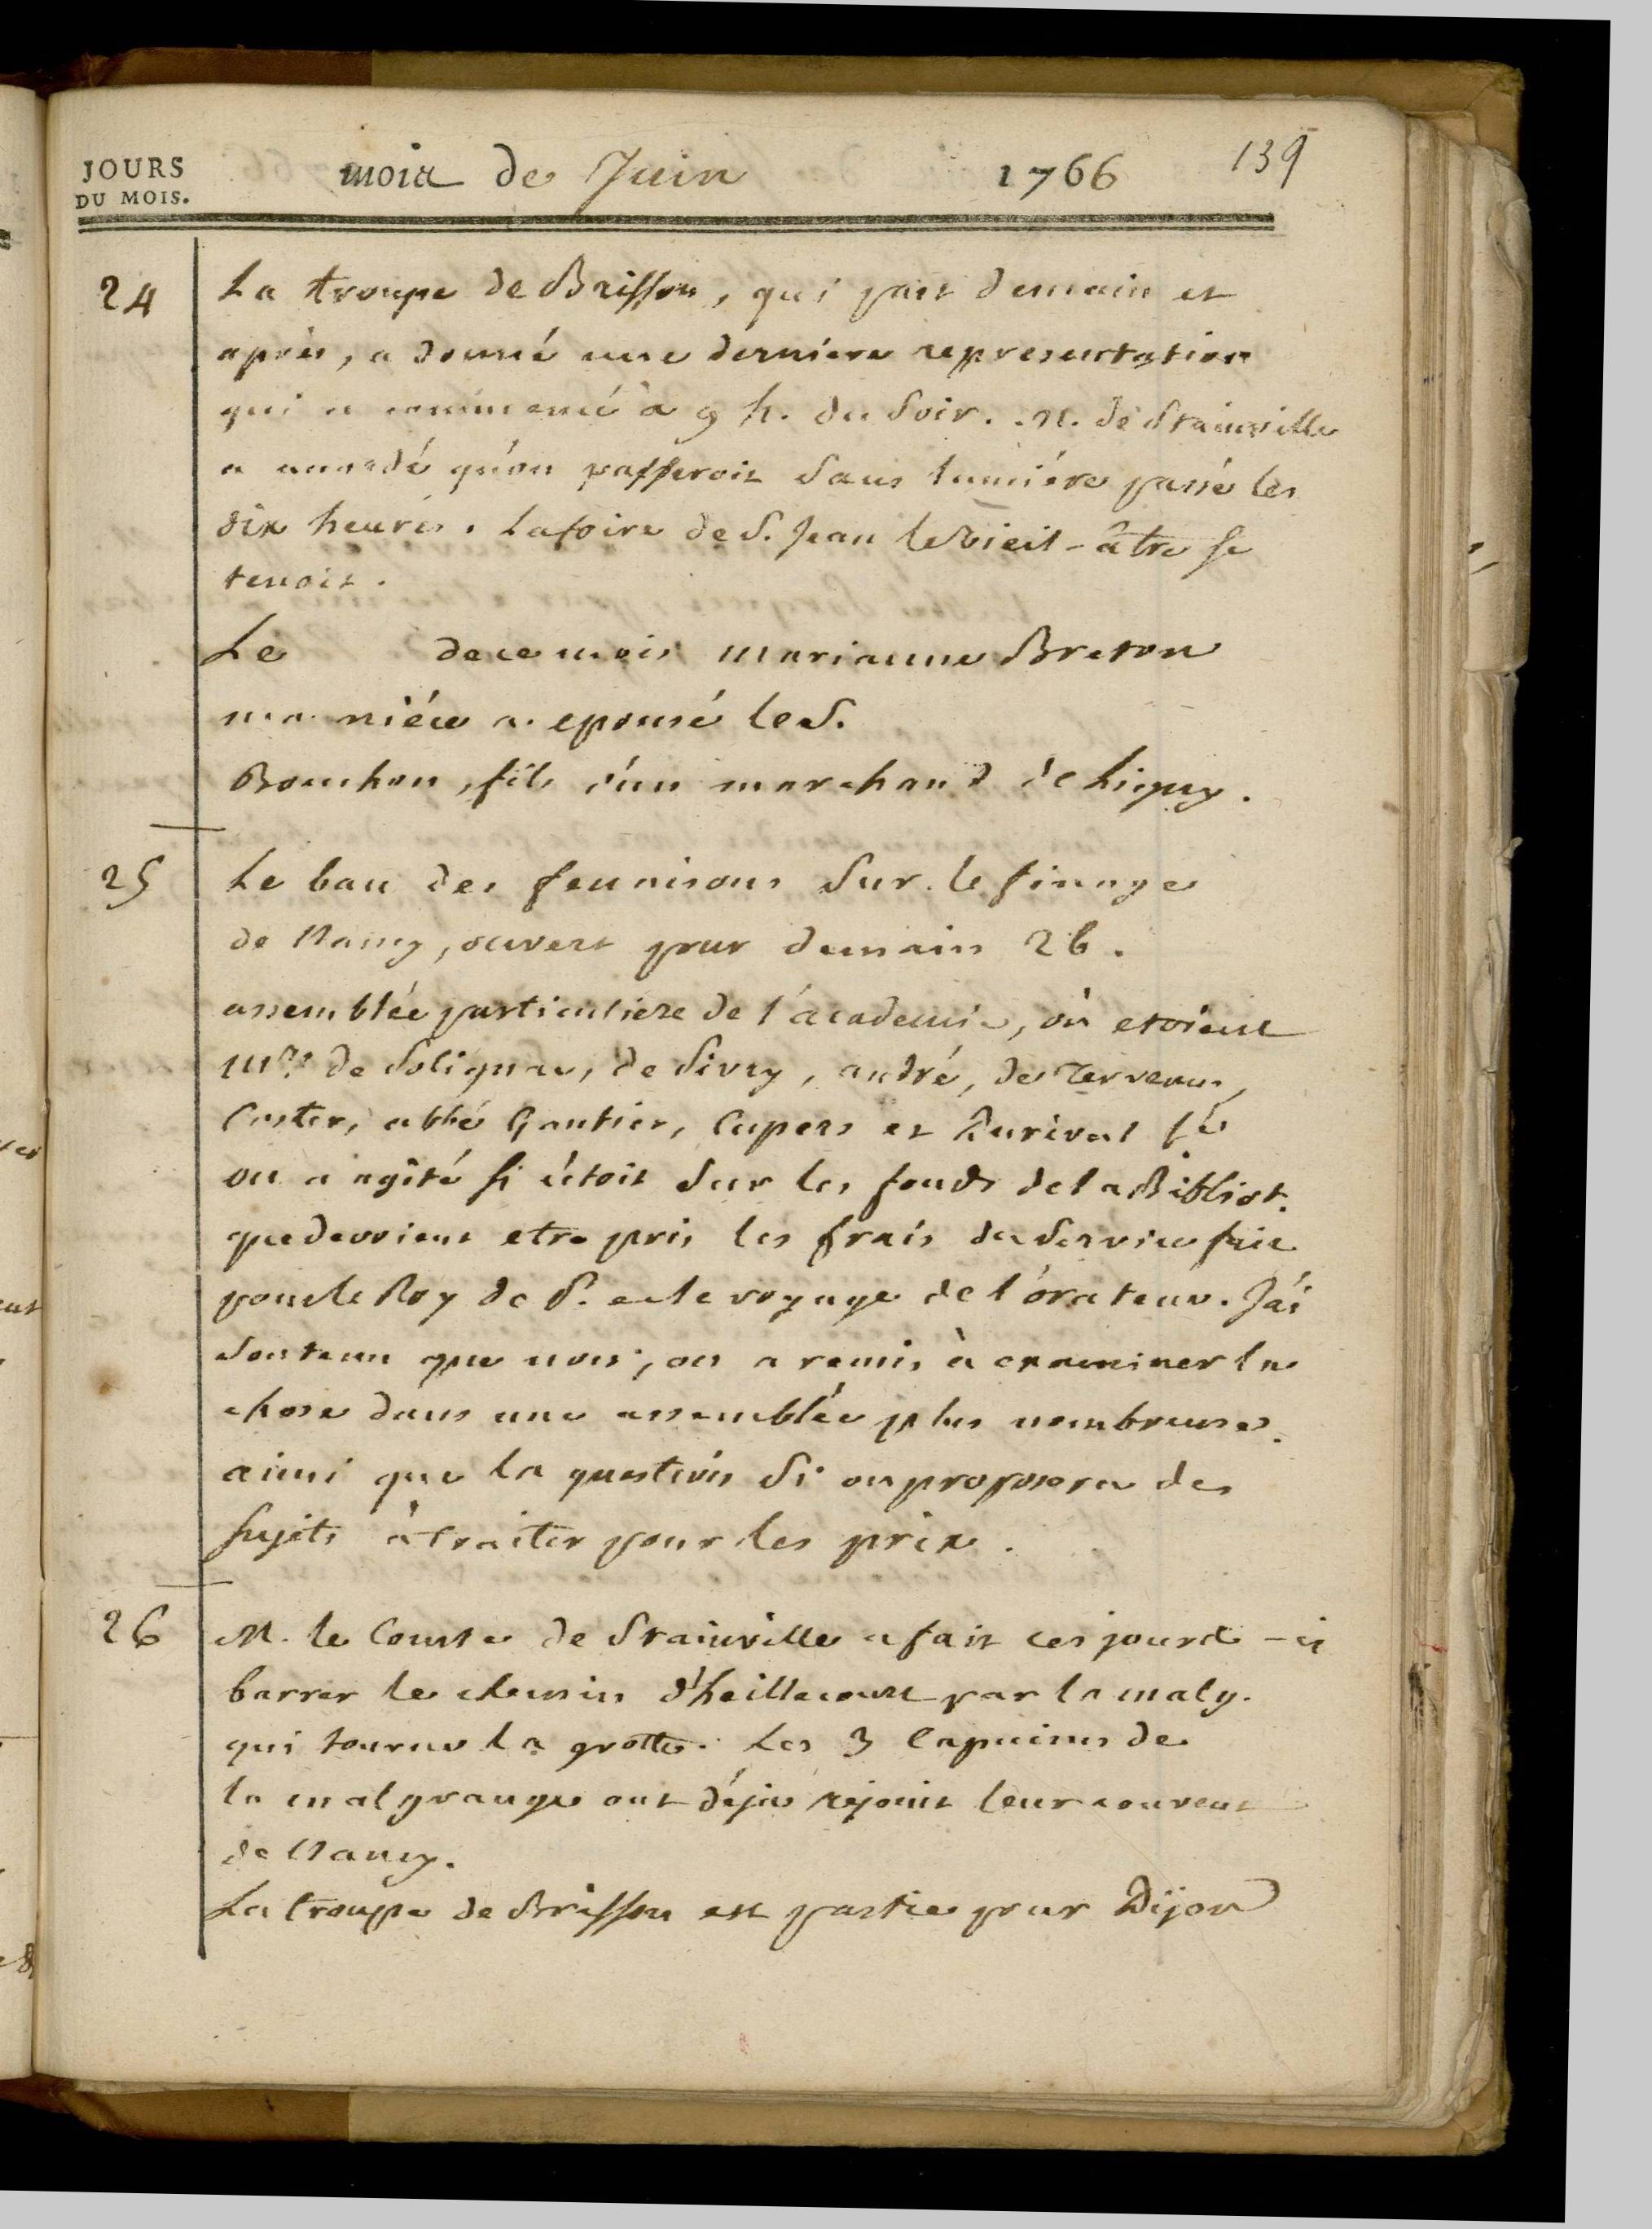 JOURS
DU MOIS.
mois de Juin 1766 139
24
La troupe de Brisson, qui part demain et
après, a donné une derniere representation
qui a commencé à 9 h. du Soir. M. de Stainville
a accordé qu'on passeroit Sans lumiére passé les
dix heures. La foire de S. Jean le vieil-âtre se
tenoit.
Le de ce mois marianne Breton
ma niéce a epousé le S.
Bouchon, fils d'un marchand de Ligny.
25
Le ban des fenaisons Sur le finage
de Nancy, ouvert pour demain 26.
assemblée particuliere de l'academie, où etoient
Mrs de Solignac, de Sivry, andré, de Tervenus,
Coster, abbé Gautier, Cupers et Durival l'é
on a agité si c'étoit Sur les fonds de la Bibliot.
que devoient etre pris les frais du Service fait
pour le Roy de P. et le voyage de l'orateur. J'ai
Soutenu que non; on a remis à examiner la
chose dans une assemblée plus nombreuse.
ainsi que la question Si on proposera des
Sujets à traiter pour les prix.
26
M. le Comte de Stainville a fait ces jours-ci
barrer le chemin d'heillecourt par la malg.
qui tourne la grotte. Les 3 Capucins de
la malgrange ont déja rejoint leur couvent
de Nancy.
La troupe de Brisson est partie pour Dijon